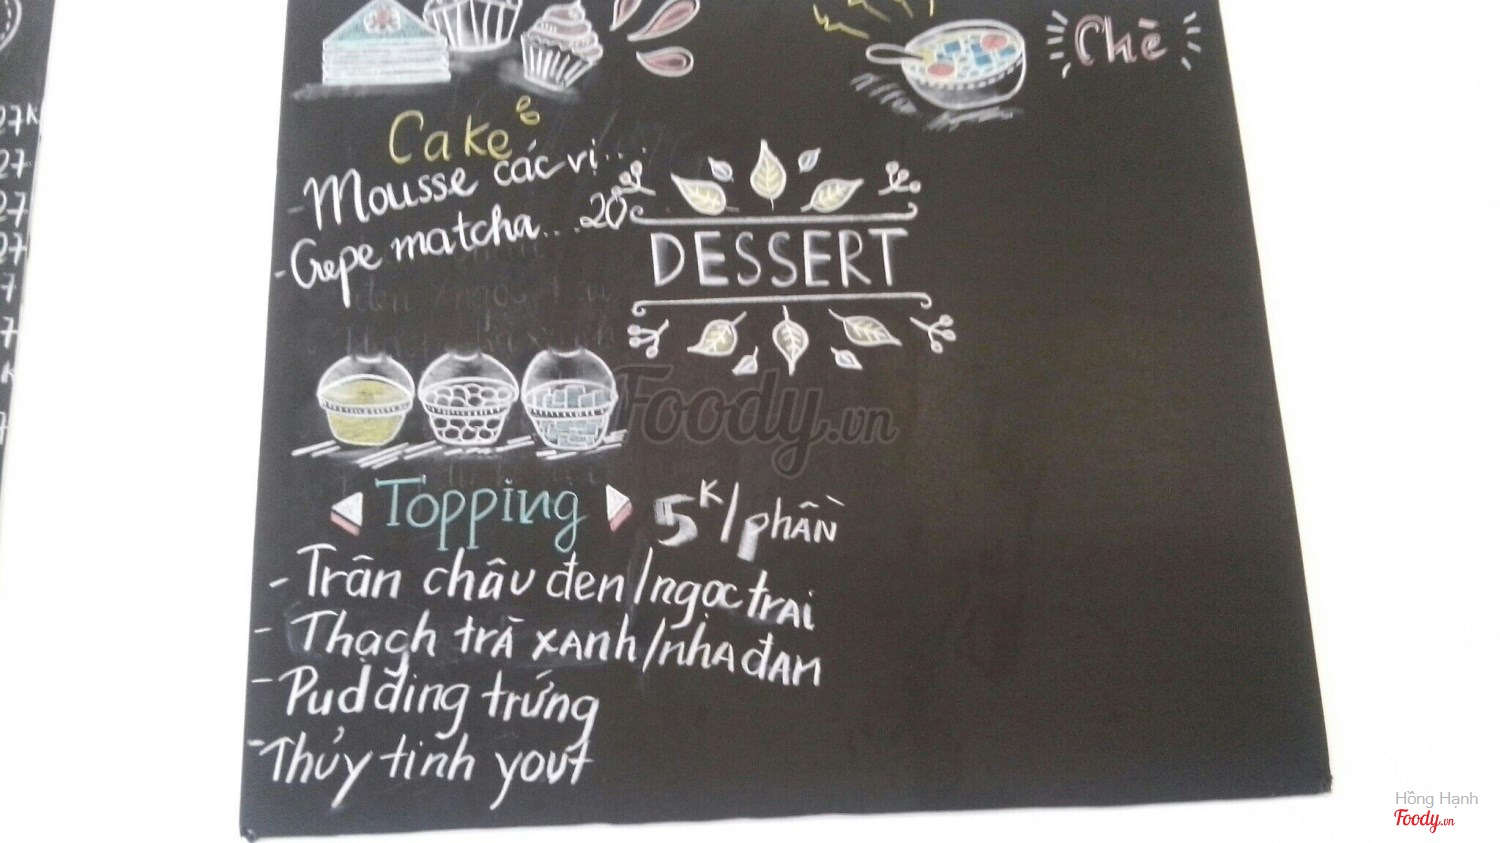 Chè
Cake
- Mousse các vị...
- Crepe matcha...20
DESSERT
Topping 5K/phần
- Trân châu đen/ngọc trai
- Thạch trà xanh/nha đam
- Pudding trứng
- Thủy tinh yout
27K
27
27
27
7
7
K
7
Foody.vn
Hồng Hạnh
Foody.vn